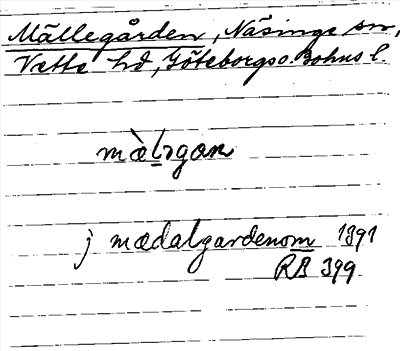 Mällegården, Näsinge sn,
Vette hd, Göteborgs o. Bohus l.
mæ̀lǝgan
j mædalgardenom 1391
RB 399